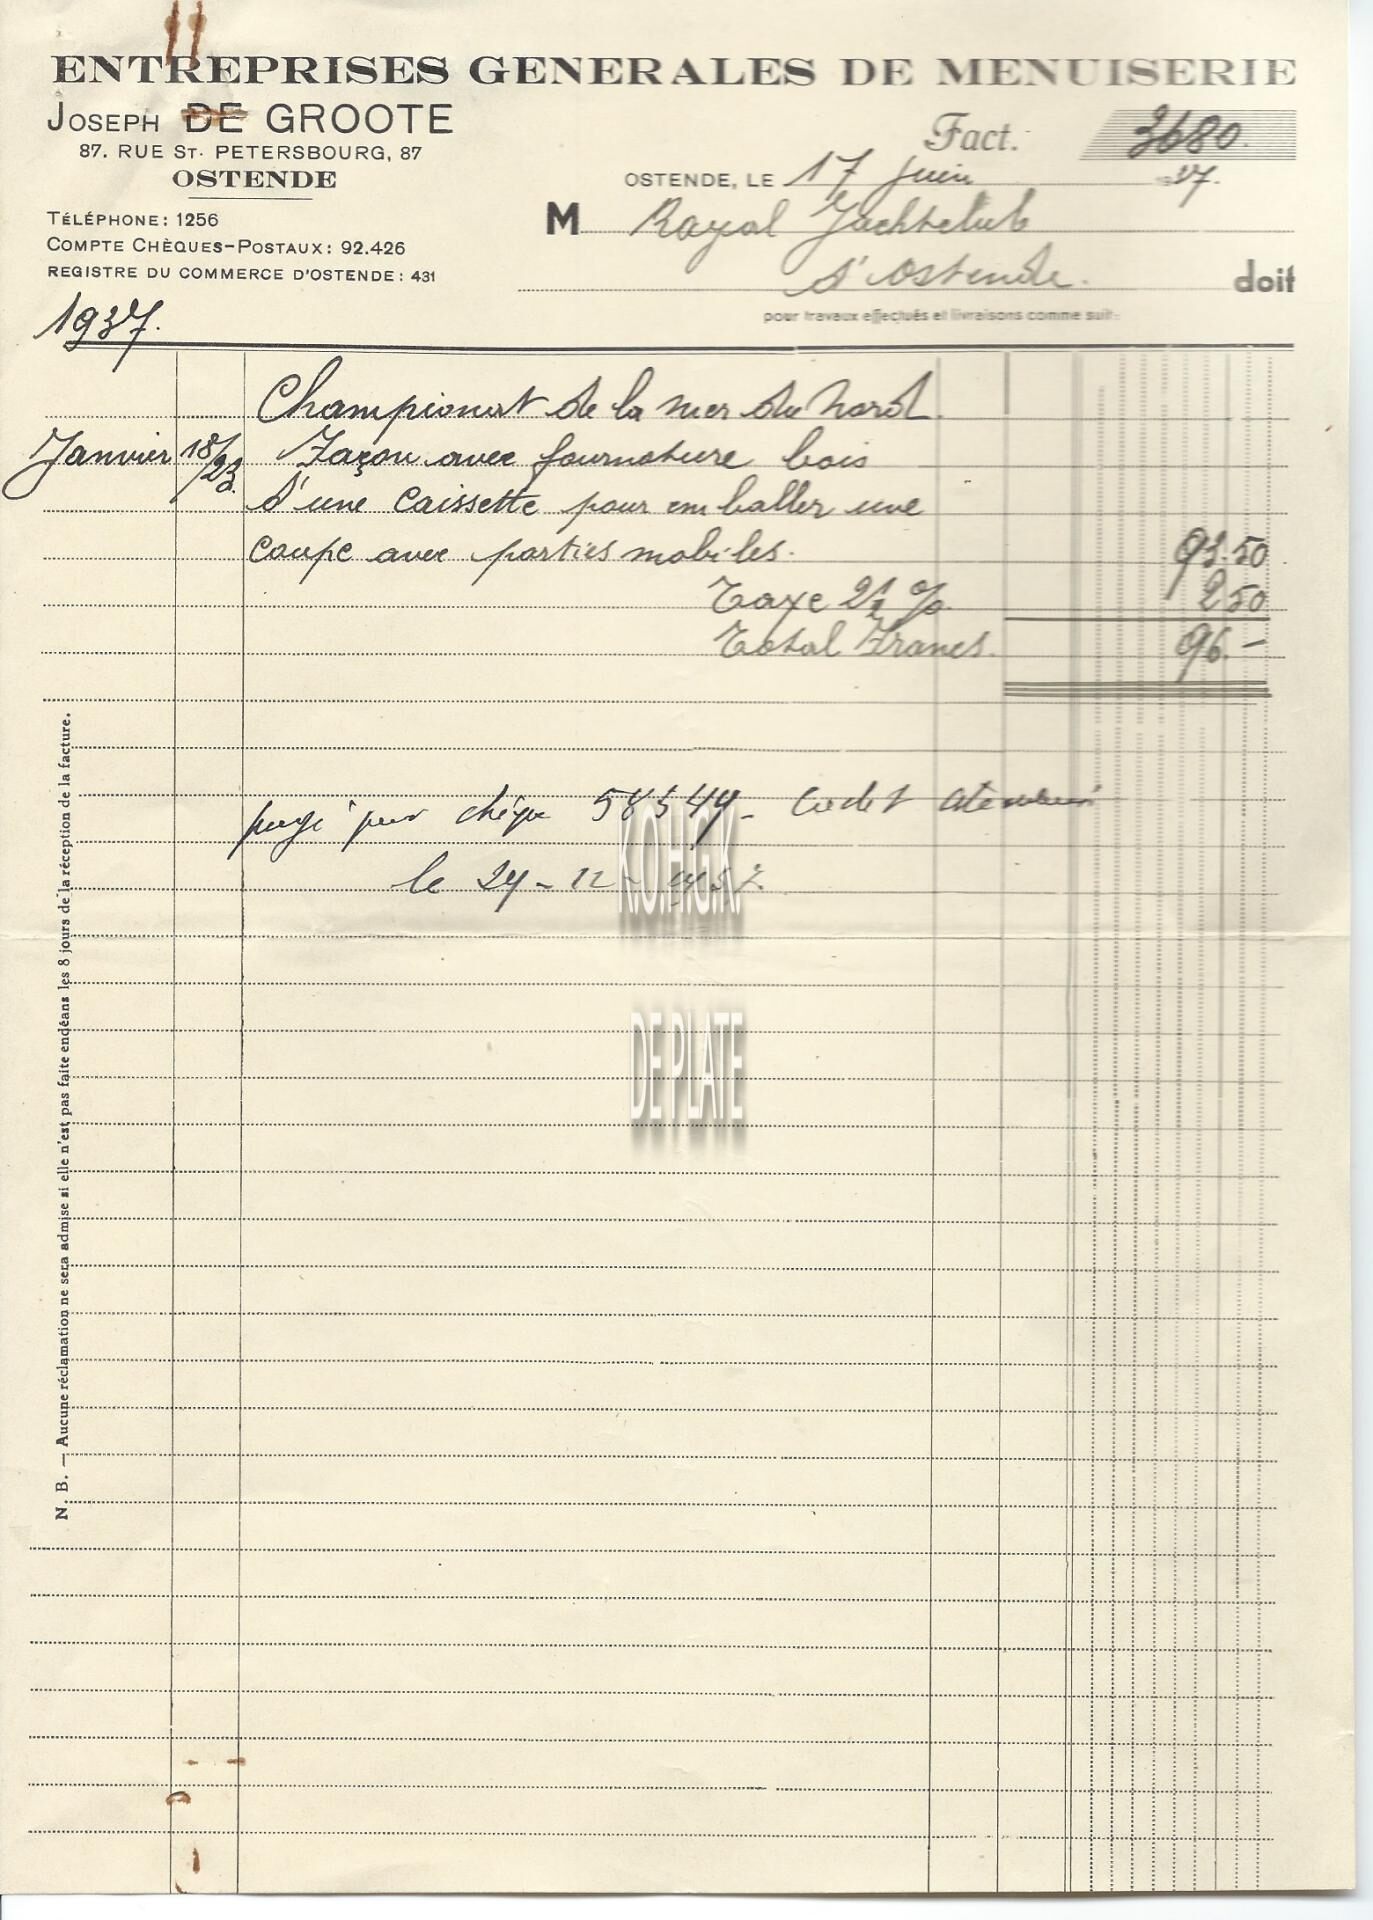 ENTREPRISES GENERALES DE MENUISERIE
JOSEPH DE GROOTE
87. RUE ST. PETERSBOURG, 87
OSTENDE
TÉLÉPHONE: 1256
COMPTE CHÈQUES-POSTAUX: 92.426
REGISTRE DU COMMERCE D'OSTENDE: 431
Fact. 3680.
OSTENDE, LE 17 Juin 1937.
M Royal Yachtclub
d'Ostende. doit
pour travaux effectués et livraisons comme suit:
1937.
Championat de la mer du Nord.
Janvier 18/23. Façon avec fournature bois
d'une caissette pour emballer une
coupe avec parties mobiles. 93.50
Taxe 2½ % 2 50
Total Francs. 96.-
payé par chèque
le 24-12-1937.
K.O.H.G.K.
DE PLATE
N. B. — Aucune réclamation ne sera admise si elle n'est pas faite endéans les 8 jours de la réception de la facture.